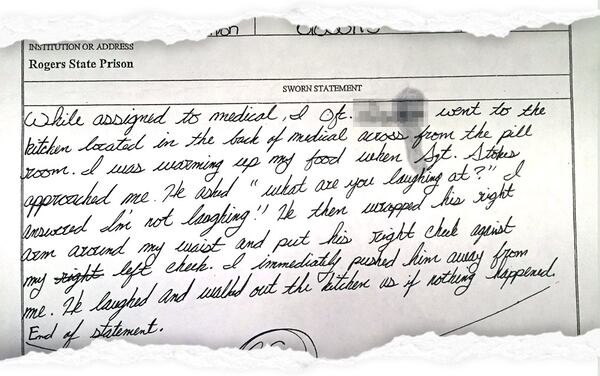 INSTITUTION OR ADDRESS
Rogers State Prison
SWORN STATEMENT
While assigned to medical, I Ofc. went to the
kitchen located in the back of medical across from the pill
room. I was warming up my food when Sgt. Stokes
approached me. He asked "what are you laughing at?" I
answered I'm not laughing!! He then wrapped his right
arm around my waist and put his right cheek against
my right left cheek. I immediately pushed him away from
me. He laughed and walked out the kitchen as if nothing happened.
End of statement.